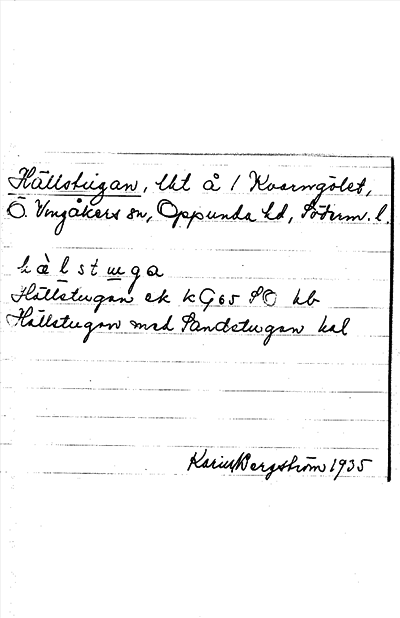 Hällstugan, lht å 1 Kvarngölet,
Ö. Vingåkers sn, Oppunda hd, Söderm. l.
hàlstuga
Hällstugan ek kG65 SO hb
Hällstugan med Sandstugan kal
Karin Bergström 1935